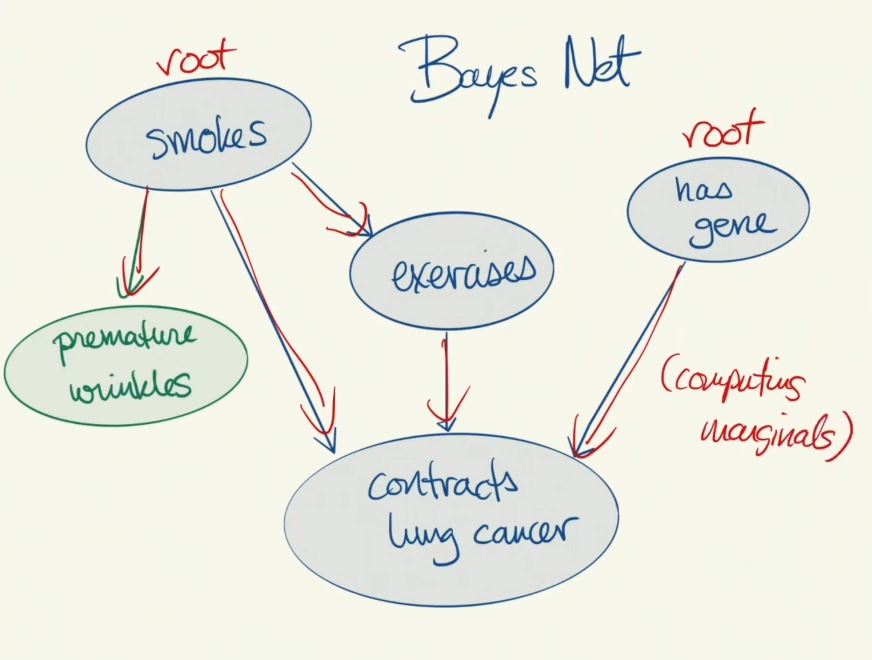 Bayes Net
root
smokes
root
has
gene
exercises
premature
wrinkles
(computing
marginals)
contracts
lung cancer